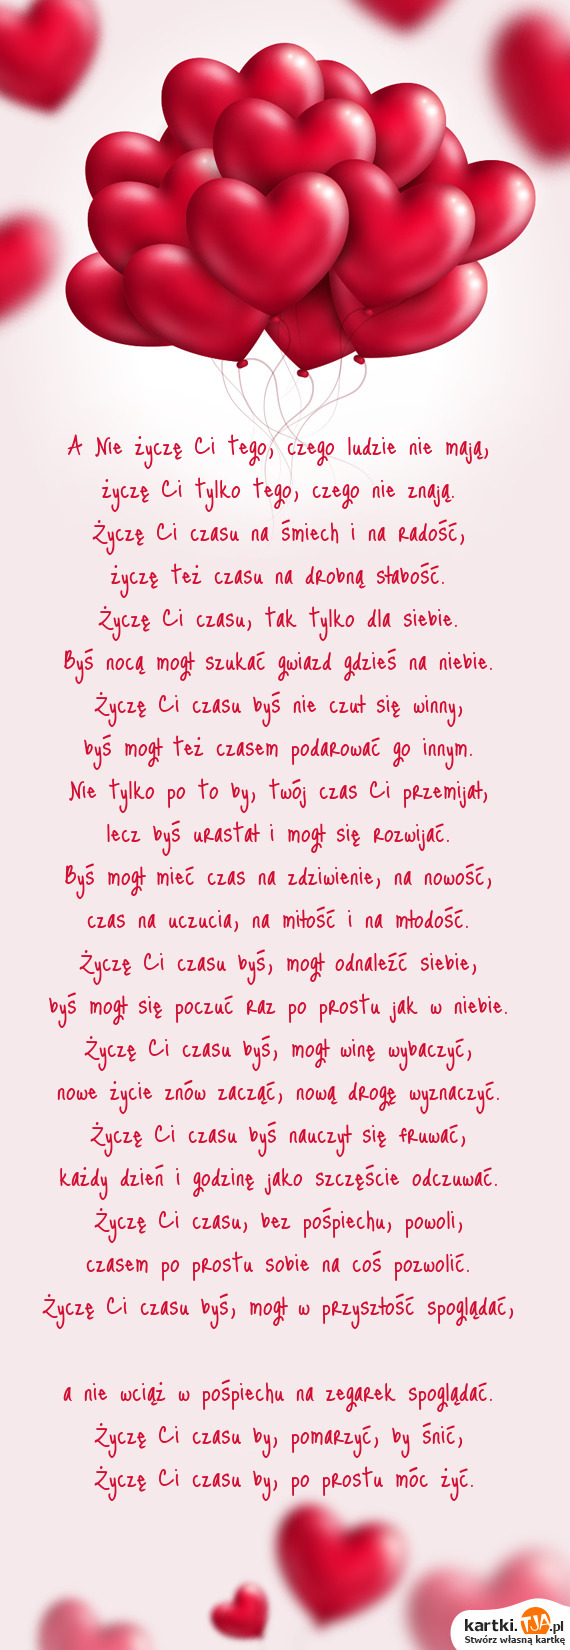 A Nie życzę Ci tego, czego ludzie nie mają,
życzę Ci tylko tego, czego nie znają.
Życzę Ci czasu na śmiech i na radość,
życzę też czasu na drobną słabość.
Życzę Ci czasu, tak tylko dla siebie.
Byś nocą mogł szukać gwiazd gdzieś na niebie.
Życzę Ci czasu byś nie czuł się winny,
byś mogł też czasem podarować go innym.
Nie tylko po to by, twój czas Ci przemijał,
lecz byś urastał i mogł się rozwijać.
Byś mogł mieć czas na zdziwienie, na nowość,
czas na uczucia, na miłość i na młodość.
Życzę Ci czasu byś, mogł odnaleźć siebie,
byś mogł się poczuć raz po prostu jak w niebie.
Życzę Ci czasu byś, mogł winę wybaczyć,
nowe życie znów zacząć, nową drogę wyznaczyć.
Życzę Ci czasu byś nauczył się fruwać,
każdy dzień i godzinę jako szczęście odczuwać.
Życzę Ci czasu, bez pośpiechu, powoli,
czasem po prostu sobie na coś pozwolić.
Życzę Ci czasu byś, mogł w przyszłość spoglądać,
a nie wciąż w pośpiechu na zegarek spoglądać.
Życzę Ci czasu by, pomarzyć, by śnić,
Życzę Ci czasu by, po prostu móc żyć.
kartki.TJA.pl
Stwórz własną kartkę